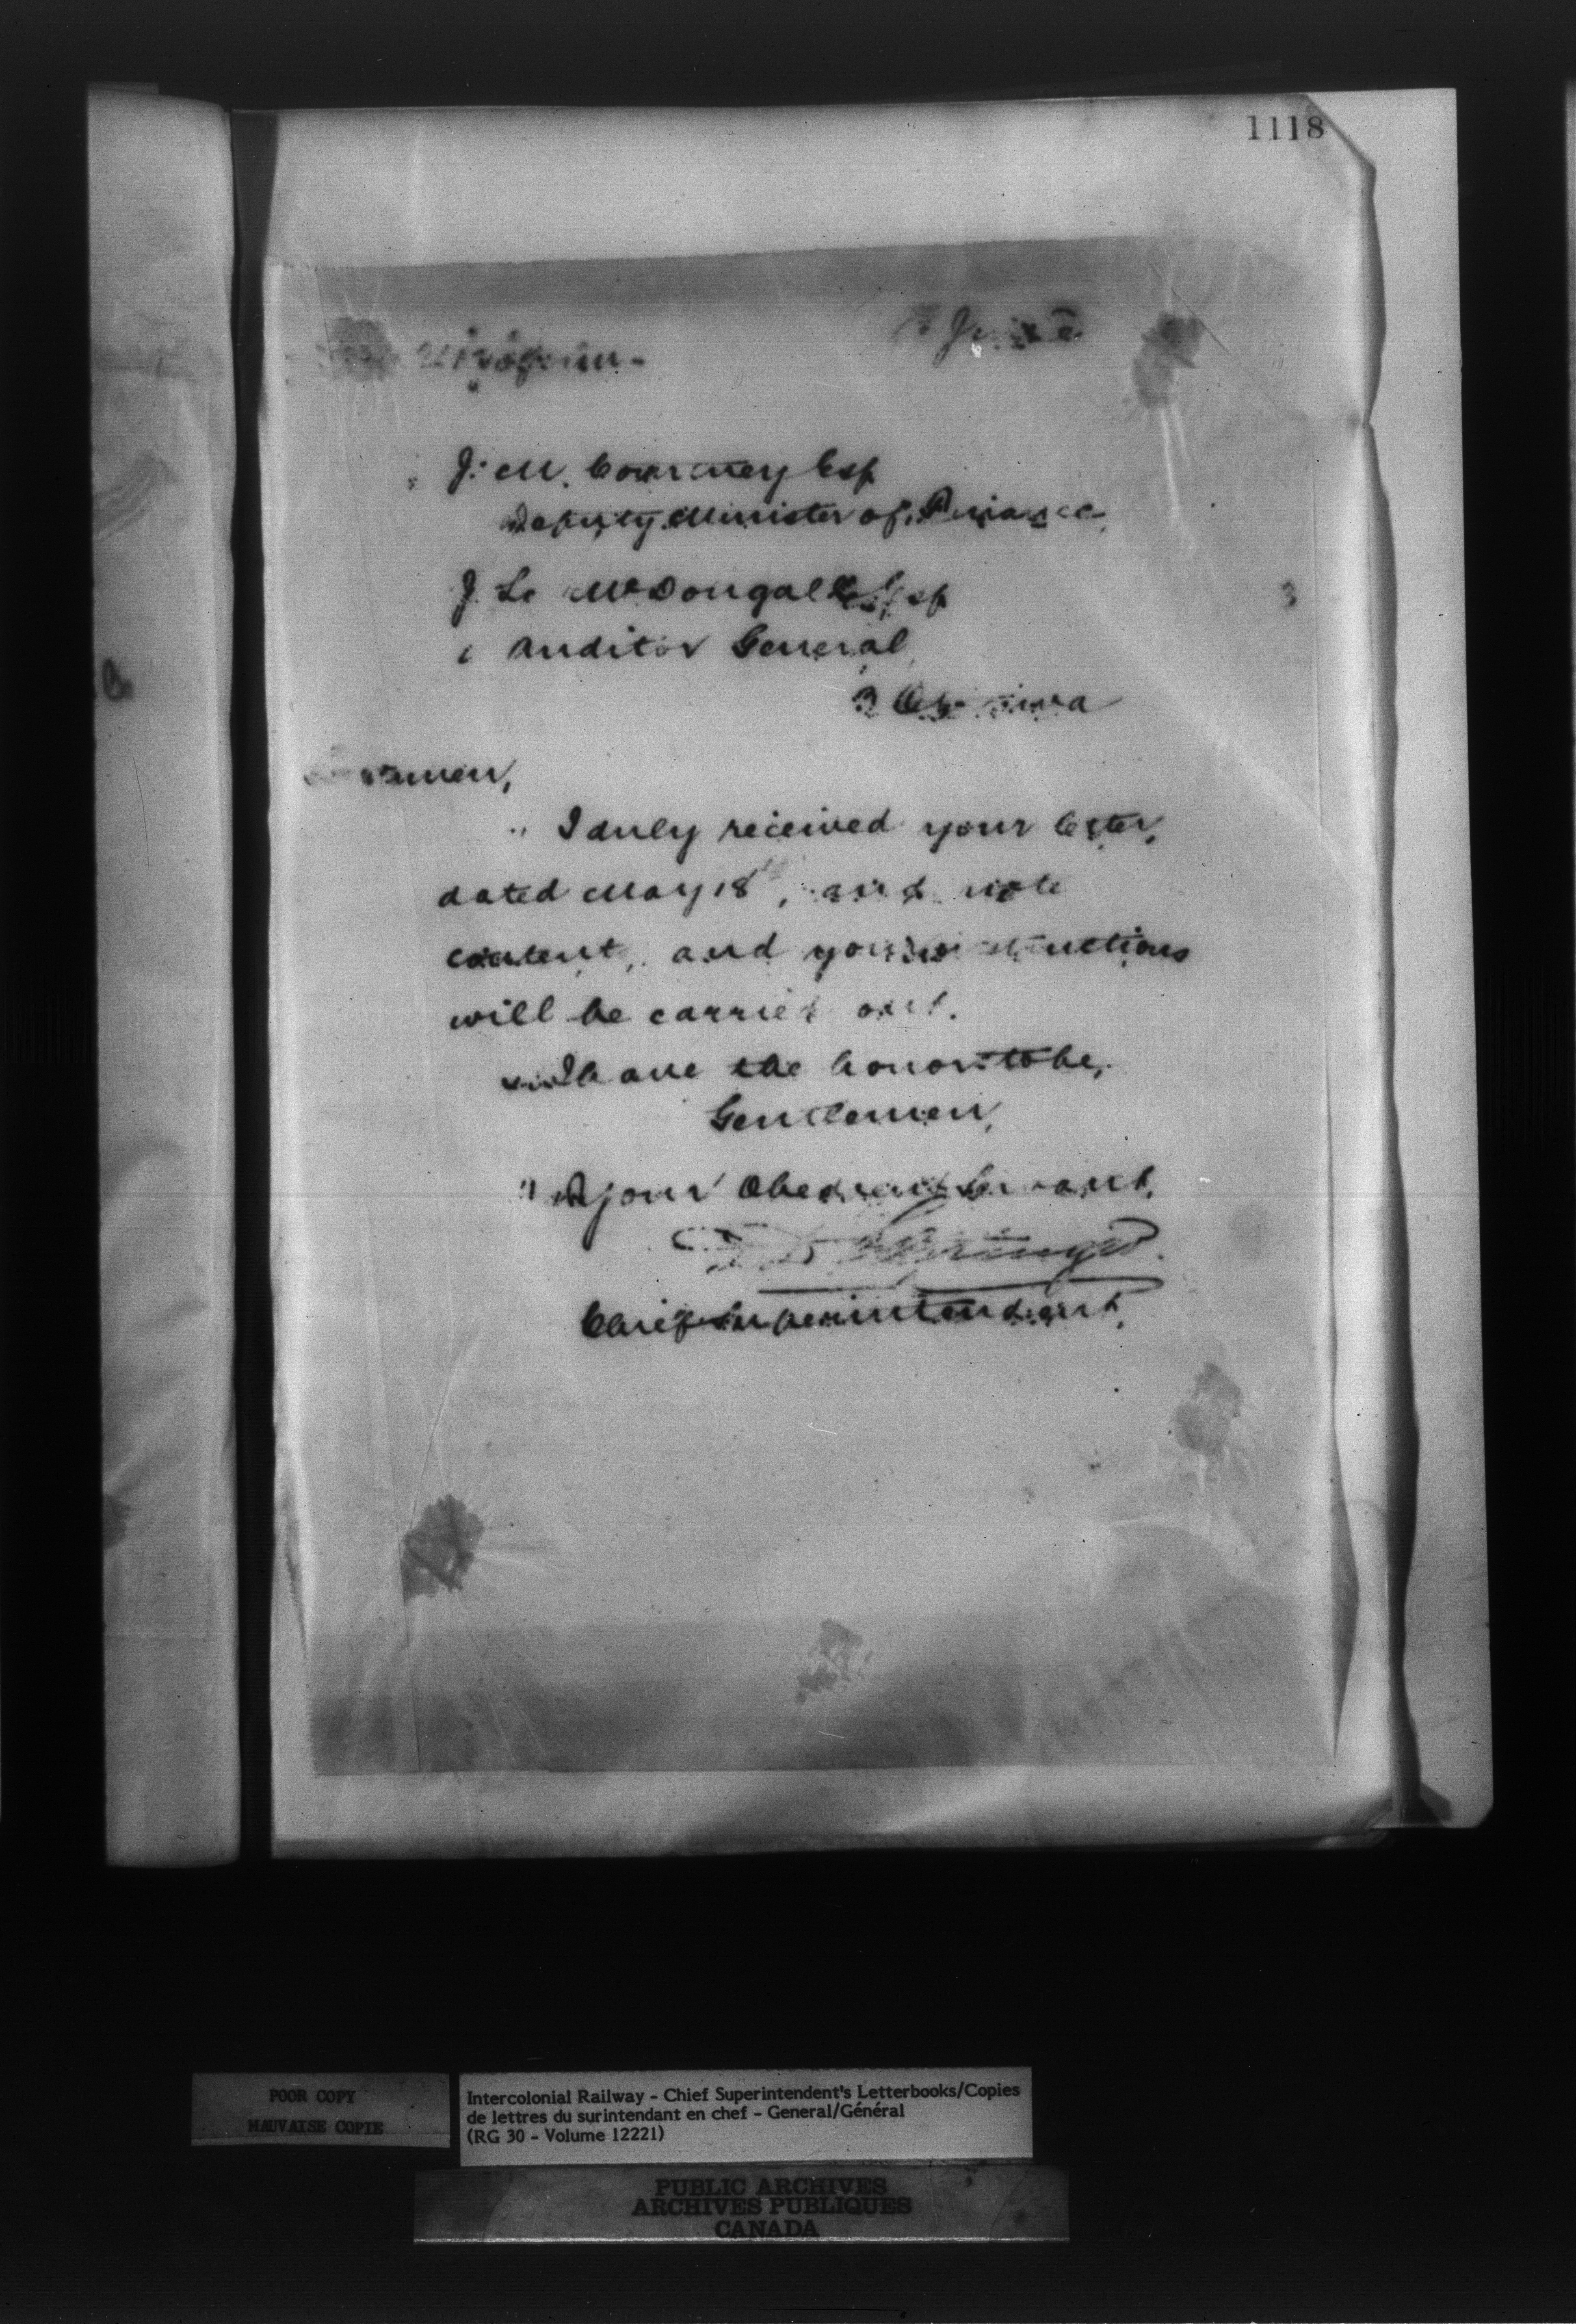 1118
June
J. M. Courtney Esq
Deputy Minister of Finance
J. L. McDougall Esq
Auditor General
Ottawa
I duly received your letter,
dated May 18th, and note
content, and your instructions
will be carried out.
I have the honor to be,
Gentlemen,
your Obedient Servant,
D Pottinger
Chief Superintendent,
POOR COPY
MAUVAISE COPIE
Intercolonial Railway - Chief Superintendent's Letterbooks/Copies
de lettres du surintendant en chef - General/Général
(RG 30 - Volume 12221)
PUBLIC ARCHIVES
ARCHIVES PUBLIQUES
CANADA